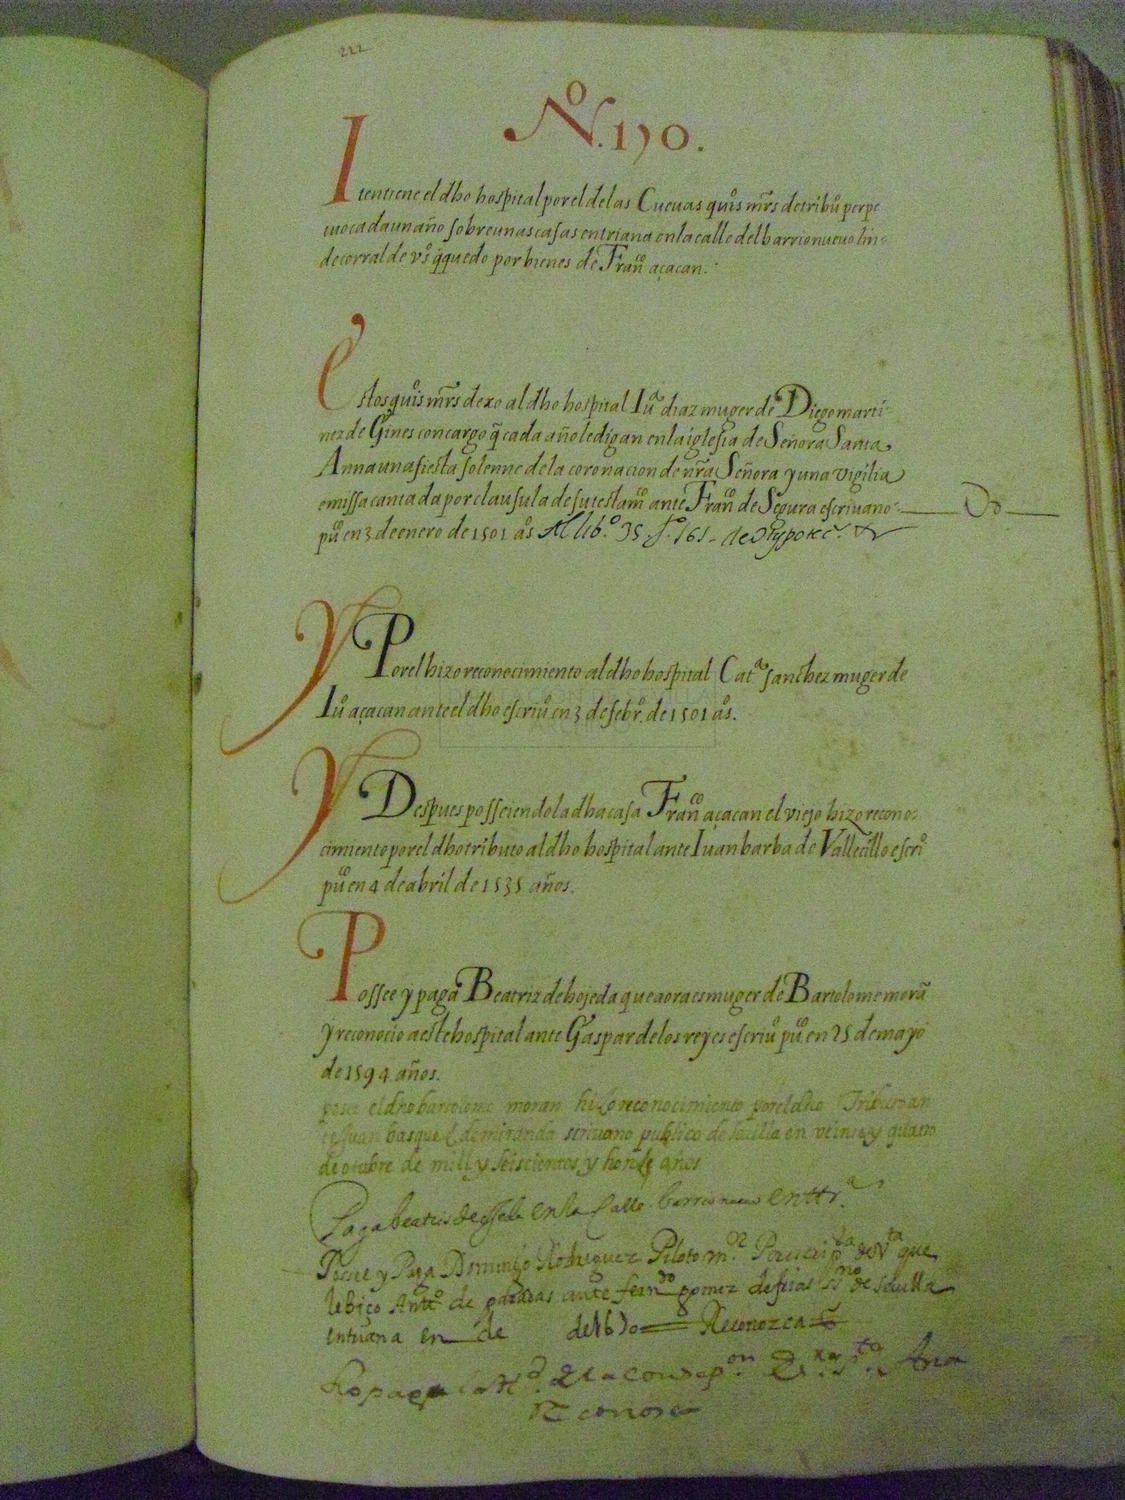 222
Nº. 170.
Iten tiene el dho hospital por el de las Cueuas quiºs mrs de tribuº perpe
tuo cada un año sobre unas casas en triana en la calle del barrio nueuo lin-
de corral de v.ºs q̃ quedo por bienes de Franco açacan.
Estos quiºs mrs dexo al dho hospital Iuª diaz muger de Diego marti-
nez de Gines con cargo q̃ cada año le digan en la iglesia de Señora Santa
Anna una fiesta solenne de la coronacion de nrã Señora y una vigilia
e missa cantada por clausula de su testamº ante Franco de Segura escriuano
puº en 3 de enero de 1501 aºs Al libº. 35. fº. 161. de Hypotec.
Y Por el hizo reconocimiento al dho hospital Catª sanchez muger de
Iuº açacan ante el dho escriuº en 3 de febrº. de 1501 aºs.
Y Despues posseiendo la dha casa Franco açacan el viejo hizo recono-
cimiento por el dho tributo al dho hospital ante Iuan barba de Vallecillo escriº
puº en 4 de abril de 1535 años.
Possee y paga Beatriz de hojeda que aora es muger de Bartolome morã
y reconocio a este hospital ante Gaspar de los reyes escriuº puº. en 25 de mayo
de 1594 años.
posee el dho bartolome moran hizo reconocimiento por el dho Tributo an
te Juan basquez de miranda scriuano publico de seuilla en veinte y quatro
de otubre de mill y seiscientos y honze años
Paga beatris de en la Calle barrio nueuo en ttrª
Posee y Paga Domingo Rodriguez Piloto que
le hiço Anttº de paradas ante ferndo gomez de frias ssno de seuilla
en triana en de de 1670 Reconozca
Reconosca